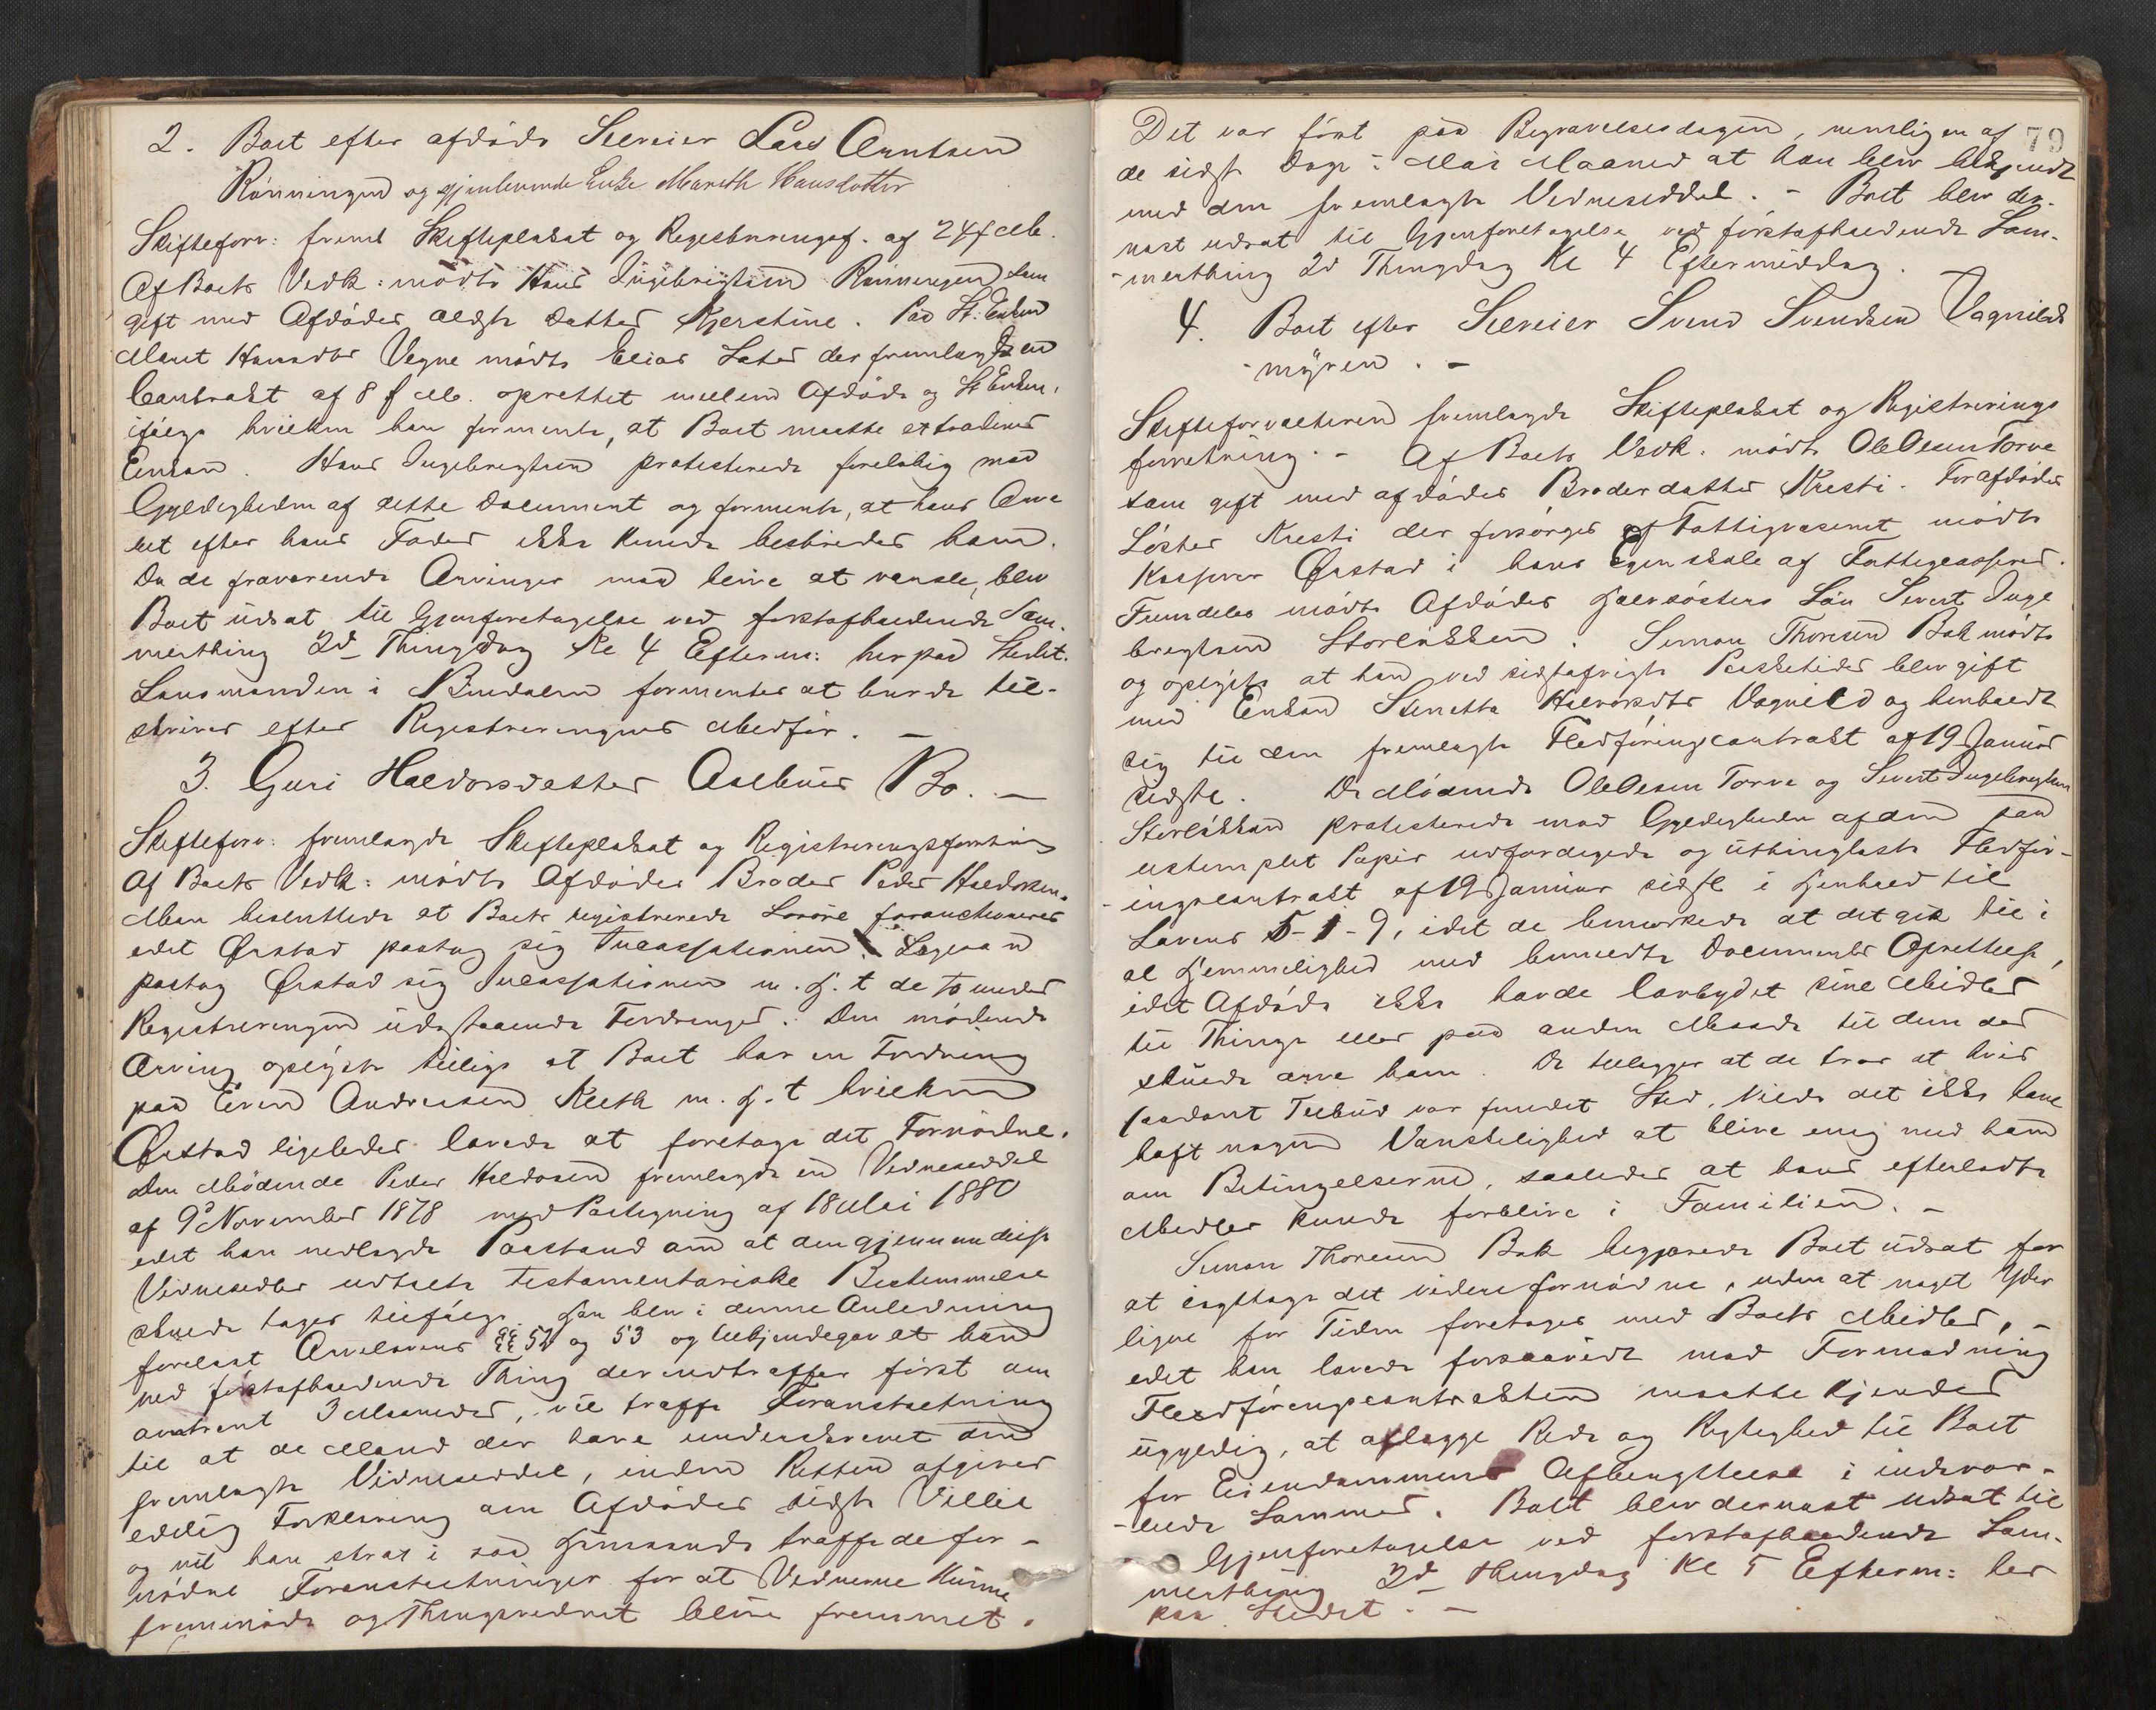 2. Boet efter afdøde Selveier Lars Arntsen
Rønningen og gjenlevende Enke Mareth Hansdatter
Skifteforv: freml Skifteplakat og Registreringsf. af 24 f. M.
Af Boets Vedk: mødte Hans Ingebrigtsen Rønningen som
gift med Afdødes ældste Datter Kjerstine. Paa St. Enken
Maret Hansdtr Vegne mødte Elias Sater der fremlagde en
Contrakt af 8 f M. oprettet mellem Afdøde og St Enken,
ifølge hvilken han formente, at Boet maatte extraderes
Enken. Hans Ingebrigtsen protesterede foreløbig mod
Gyldigheden af dette Document og formente, at hans Arve
ret efter hans Fader ikke kunde bestrides ham.
Da de fraværende Arvinger maa blive at varsle, blev
Boet udsat til Gjenforetagelse ved førstafholdende Som-
merthing 2d Thingdag Kl 4 Efterm: her paa Stedet.
Lensmanden i Rindalen formentes at burde til-
skrives efter Registreringens Medfør. —
3. Guri Haldorsdatter Aslbues Bo. —
Skifteforv: fremlagde Skifteplakat og Registreringsforretning
Af Boets Vedk: mødte Afdødes Broder Peder Haldorsen.
Man besluttede at Boets registrerede Løsøre forauctioneres
idet Ørstad paatog sig Incassationen. Ligesaa
paatog Ørstad sig Incassationen m. H. t de to under
Registreringen udestaaende Fordringer. Den mødende
Arving oplyste tillige at Boet har en Fordring
paa Even Andreasen Kleth m. H. t hvilken
Ørstad ligeledes lovede at foretage det Fornødne.
Den Mødende Peder Haldosen fremlagde en Vidneseddel
af 9de November 1878 med Paategning af 18 Mai 1880
idet han nedlagde Paastand om at den gjennem disse
Vidnesedler udtalte testamentariske Bestemmelse
skulde tages tilfølge. Han blev i denne Anledning
forelæst Arvelovens §§ 52 og 53 og tilkjendegav at han
ved førstafholdende Thing der indtræffer først om
omtrent 3 Maaneder, vil træffe Foranstaltning
til at de Mænd der have underskrevet den
fremlagte Vidneseddel, inden Retten afgiver
edelig Forklaring om Afdødes sidste Villie
og vil han strax i saa Henseende træffe de for-
nødne Foranstaltninger for at Vidnerne kunne
fremmøde og Thingsvidnet blive fremmet.
79
Det var først paa Begravelsesdagen, nemlig en af
de sidste Dage i Mai Maaned at han blev bekjendt
med den fremlagte Vidneseddel. — Boet blev der-
næst udsat til Gjenforetagelse ved førstafholdende Som-
merthing 2d Thingdag Kl 4 Eftermiddag.
4. Boet efter Selveier Svend Svendsen Vagnild
-myren. —
Skifteforvalteren fremlagde Skifteplakat og Registrerings
forretning. — Af Boets Vedk. mødte Ole Olsen Torve
som gift med afdødes Broderdatter Kresti. For afdødes
Søster Kresti der forsørges af Fattigvæsenet mødte
Kasserer Ørstad i hans Egenskab af Fattigkasserer.
Fremdeles mødte Afdødes Halvsøsters Søn Sivert Inge
brigtsen Storløkken. Simon Thoresen Bak mødte
og oplyste at han ved sidstafvigte Paasketider blev gift
med Enken Sunetta Halvorsdtr Vagnild og henholdt
sig til den fremlagte Fledføringscontrakt af 19 Januar
sidstl. De Mødende Ole Olsen Torve og Sivert Ingebrigtsen
Storløkken protesterede mod Gyldigheden af den paa
ustemplet Papir udfærdigede og utinglæste Fledfør-
ingscontrakt af 19 Januar sidstl i Henhold til
Lovens 5-1-9, idet de bemærkede at det gik til i
al Hemmelighed med bemeldte Documents Oprettelse,
idet Afdøde ikke havde lovbydet sine Midler
til Things eller paa anden Maade til dem der
skulde arve ham. De tillægger at de tror at hvis
saadant Tilbud var fundet Sted, vilde det ikke have
haft nogen Vanskelighed at blive enig med ham
om Betingelserne, saaledes at hans efterladte
Midler kunde forblive i Familien. —
Simon Thoresen Bak begjærede Boet udsat for
at iagttage det videre fornødne, uden at noget Yder
ligere for Tiden foretages med Boets Midler, —
idet han lovede forsaavidt mod Formodning
Fledføringscontrakten maatte kjendes
ugyldig, at aflægge Rede og Rigtighed til Boet
for Eiendommens Afbenyttelse i indevær-
-ende Sommer. Boet blev dernæst udsat til
Gjenforetagelse ved førstafholdende Som-
merthing 2d Thingdag Kl 5 Efterm: her
paa Stedet. —